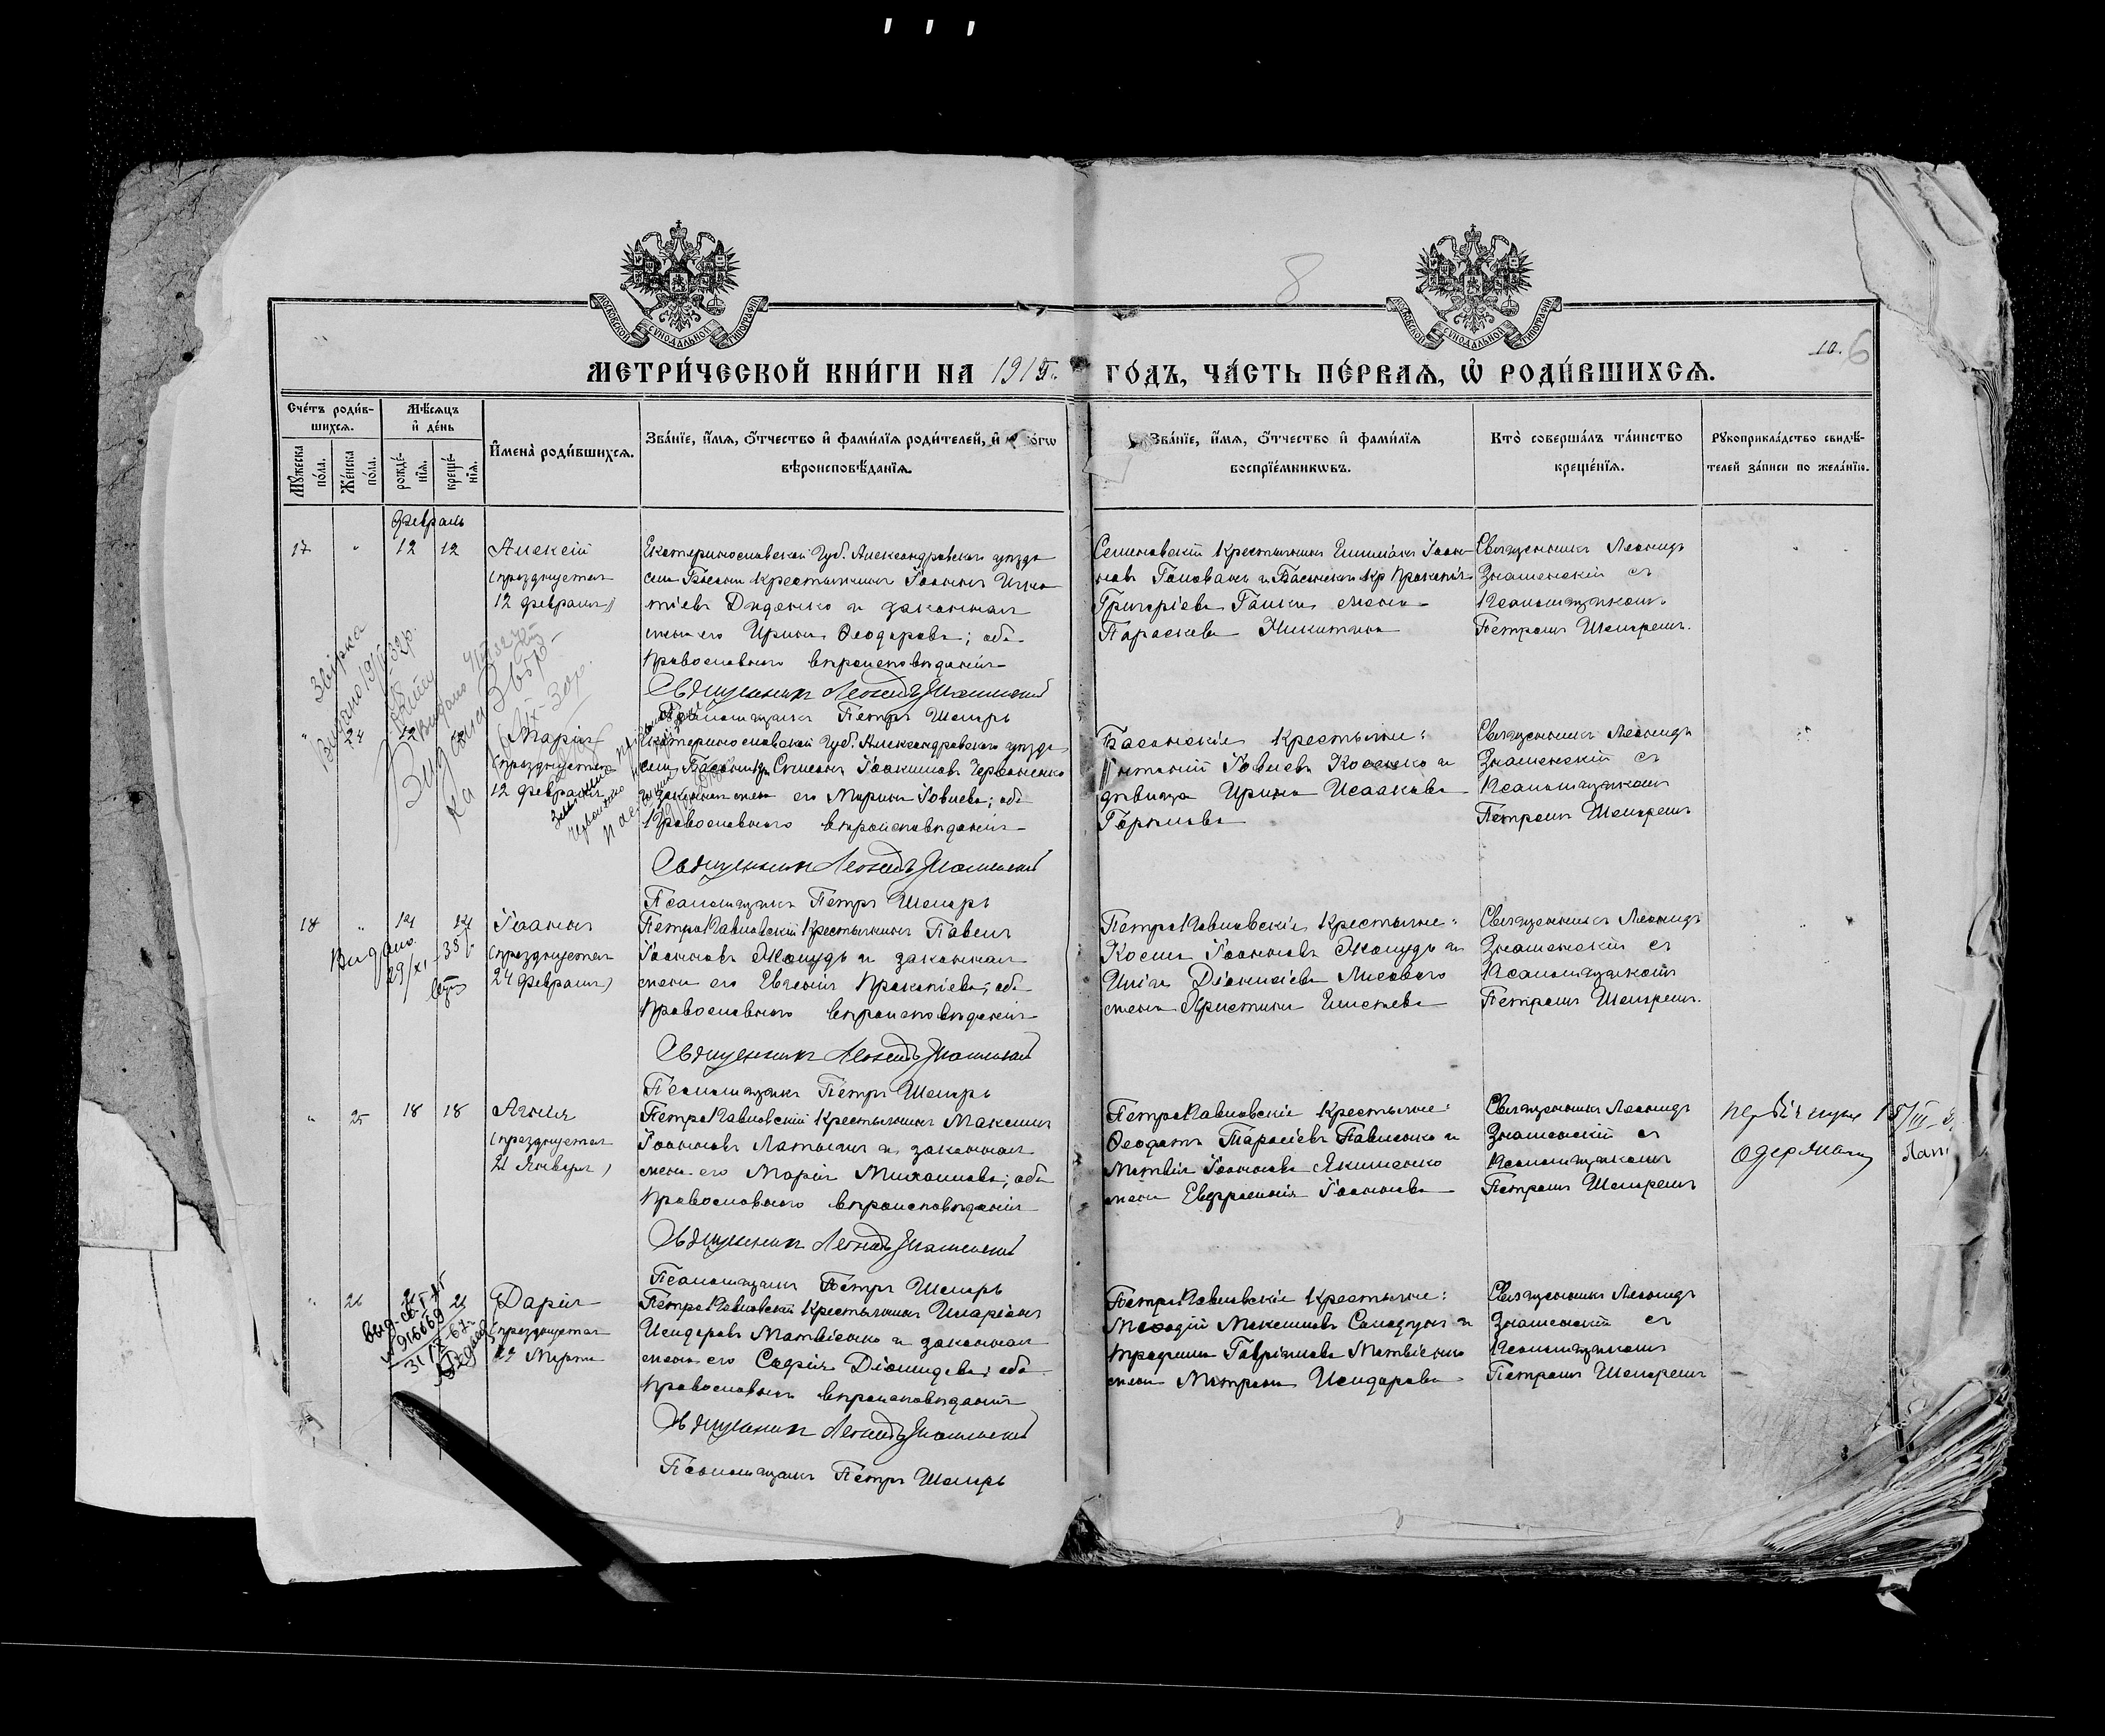 8
10. 6
МОСКОВСКОЙ СУНОДАЛЬНОЙ ТИПОГРАФІИ
МОСКОВСКОЙ СУНОДАЛЬНОЙ ТИПОГРАФІИ
МЕТРИ́ЧЕСКОЙ КНИ́ГИ НА 1915 г. ГО́ДЪ, ЧА́СТЬ ПЕ́РВАЯ, Ѡ РОДИ́ВШИХСЯ.
Сче́тъ роди́в-
шихся.
Мѣ́сяцъ
и де́нь
Мꙋ́жеска
по́ла.
Же́нска
по́ла.
рожде́-
нїя.
креще́-
нїя.
Имена̀ роди́вшихся.
Зва́нїе, и́мя, о́тчество и фами́лїя роди́телей, и
вѣроисповѣ́данїя.
Зва́нїе, и́мя, о́тчество и фами́лїя
воспрїе́мникѡвъ.
Кто̀ соверша́лъ та́инство
креще́нїя.
Рꙋкоприкла́дство свидѣ́-
телей за́писи по жела́нїю.
Февраль
17 " 12 12 Алексій
(празднуется
12 февраля)
Екатеринославской Губ. Александровскаго уѣзда
села Басани крестьянинъ Іоаннъ Игна
тіевъ Диденко и законная
жена его Ирина Ѳеодорова; оба
Православнаго вѣроисповѣданія
Священникъ Леонидъ Знаменскій
Псаломщикъ Петръ Шепирь
Семеновскій крестьянинъ Іоан-
новъ Голованъ и Басанскаго кр Прокопія
Григоріева Галки жена
Параскева Никитина
Священникъ Леонидъ
Знаменскій съ
Псаломщикомъ
Петромъ Шепиремъ.
Звірка
Видано
" 24 12 12 Марія
(празднуется
12 февраля)
Екатеринославской Губ. Александровскаго уѣзда
села Басани кр. Симеонъ Іоакимовъ Червоненко
и законная жена его Марина Іовлева; оба
Православнаго вѣроисповѣданія
Священникъ Леонидъ Знаменскій
Псаломщикъ Петръ Шепирь
Басанскіе крестьяне:
Антоній Іовлевъ Косенко и
дѣвица Ирина Исаакова
Горпълова
Священникъ Леонидъ
Знаменскій съ
Псаломщикомъ
Петромъ Шепиремъ
18 " 14 14 Іоаннъ
(празднуется
24 февраля)
Видано.
29/XI-35
ПетроПавловскій крестьянинъ Павелъ
Іоанновъ Жолудь и законная
жена его Евгенія Прокопіева; оба
Православнаго вѣроисповѣданія
Священникъ Леонидъ Знаменскій
Псаломщикъ Петръ Шепирь
ПетроПавловскіе крестьяне:
Косма Іоанновъ Жолудь и
Иліи Діонисіева Лисового
жена Христина
Священникъ Леонидъ
Знаменскій съ
Псаломщикомъ
Петромъ Шепиремъ.
" 25 18 18 Агнія
(празднуется
21 Января)
ПетроПавловскій крестьянинъ Максимъ
Іоанновъ Латышъ и законная
жена его Марія Михаилова; оба
Православнаго вѣроисповѣданія
Священникъ Леонидъ Знаменскій
Псаломщикъ Петръ Шепирь
ПетроПавловскіе крестьяне:
Ѳеодотъ Тарасіевъ Павленко и
Матвія Іоаннова Якименко
жена Евфросинія Іоаннова
Священникъ Леонидъ
Знаменскій съ
Псаломщикомъ
Петромъ Шепиремъ
одержала
" 26 21 21 Дарія
(празднуется
19 Марта
№ 916669
ПетроПавловскій крестьянинъ Иларіонъ
Исидоровъ Матвіенко и законная
жена его Софія Діомидова; оба
Православнаго вѣроисповѣданія
Священникъ Леонидъ Знаменскій
Псаломщикъ Петръ Шепирь
ПетроПавловскіе крестьяне:
Меѳодій Максимовъ Самофулъ и
Трофима Гавріилова Матвіенко
жена Матрона Исидорова
Священникъ Леонидъ
Знаменскій съ
Псаломщикомъ
Петромъ Шепиремъ